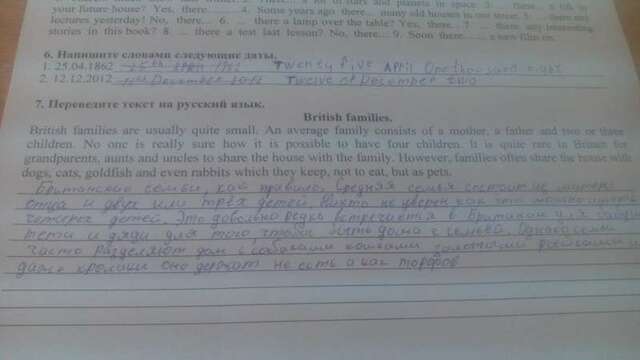 your future house? Yes, there..... 4. Some years ago there... many old houses in our street. 5. ... there any
lectures yesterday! No, there... 6. ... there a lamp over the table? Yes, there... 7. ... there any interesting
stories in this book? 8. ... there a test last lesson? No, there... 9. Soon there...... a new film on.
6. Напишите словами следующие даты.
1. 25.04.1862 25th April Twenty Five April One thousand eight
2. 12.12.2012 December 2012 Twelve of December two
7. Переведите текст на русский язык.
British families.
British families are usually quite small. An average family consists of a mother, a father and two or three
children. No one is really sure how it is possible to have four children. It is quite rare in Britain for
grandparents, aunts and uncles to share the house with the family. However, families often share the house with
dogs, cats, goldfish and even rabbits which they keep, not to eat, but as pets.
Британские семьи, как правило. Средняя семья состоит из матери
отца и двух или трёх детей. Никто не уверен как это можно иметь
четырех детей. Это довольно редко встречается в Британии для
тети и дяди для того, чтобы быть дома с семьей. Однако семьи
часто разделяют дом с собаками кошками золотыми рыбками и
даже кролики они держат не есть а как